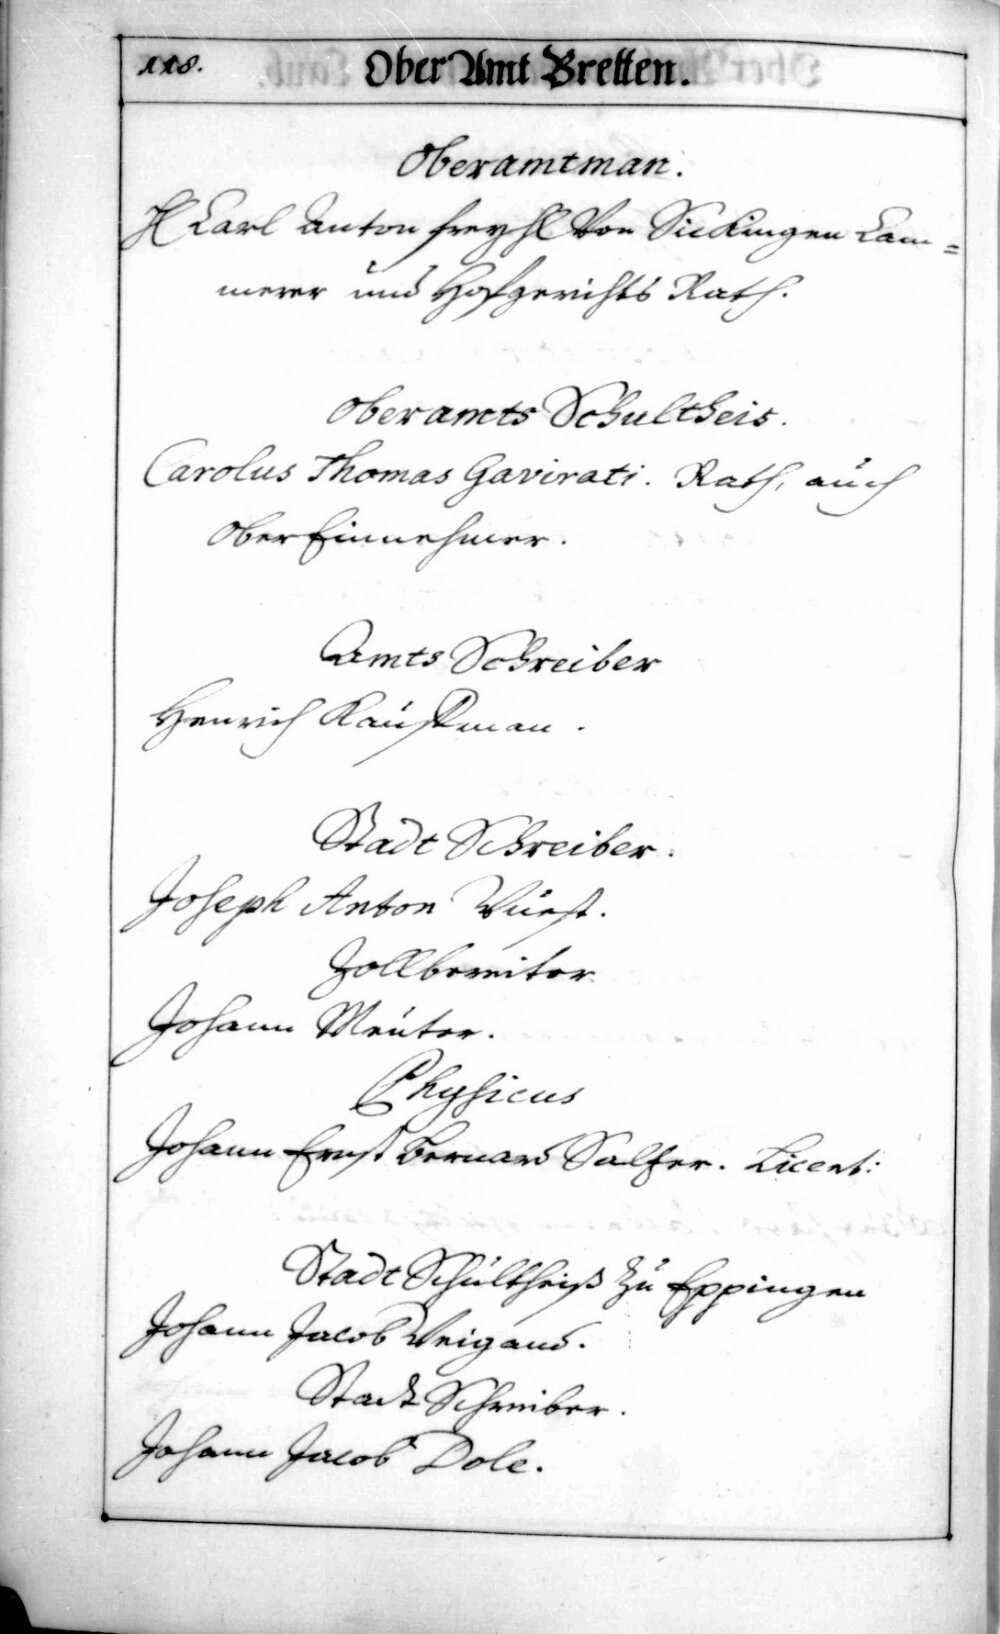 118.
Ober Amt Bretten.
Oberamtman.
H Carl Anton freyH Von Sickingen Cam=
merer und Hofgerichts Rath.
Oberamts Schultheis.
Carolus Thomas Gavirati. Rath, auch
Ober Einnehmer.
Amts Schreiber
Henrich Kauffman.
Stadt Schreiber.
Joseph Anton Wüest.
Zollbereiter
Johann Meüter.
Physicus
Johann Ernst Bernard Salfer. Licent:
Stadt Schültheiß zu Eppingen
Johann Jacob Weigand.
Stadt Schreiber.
Johann Jacob Dole.